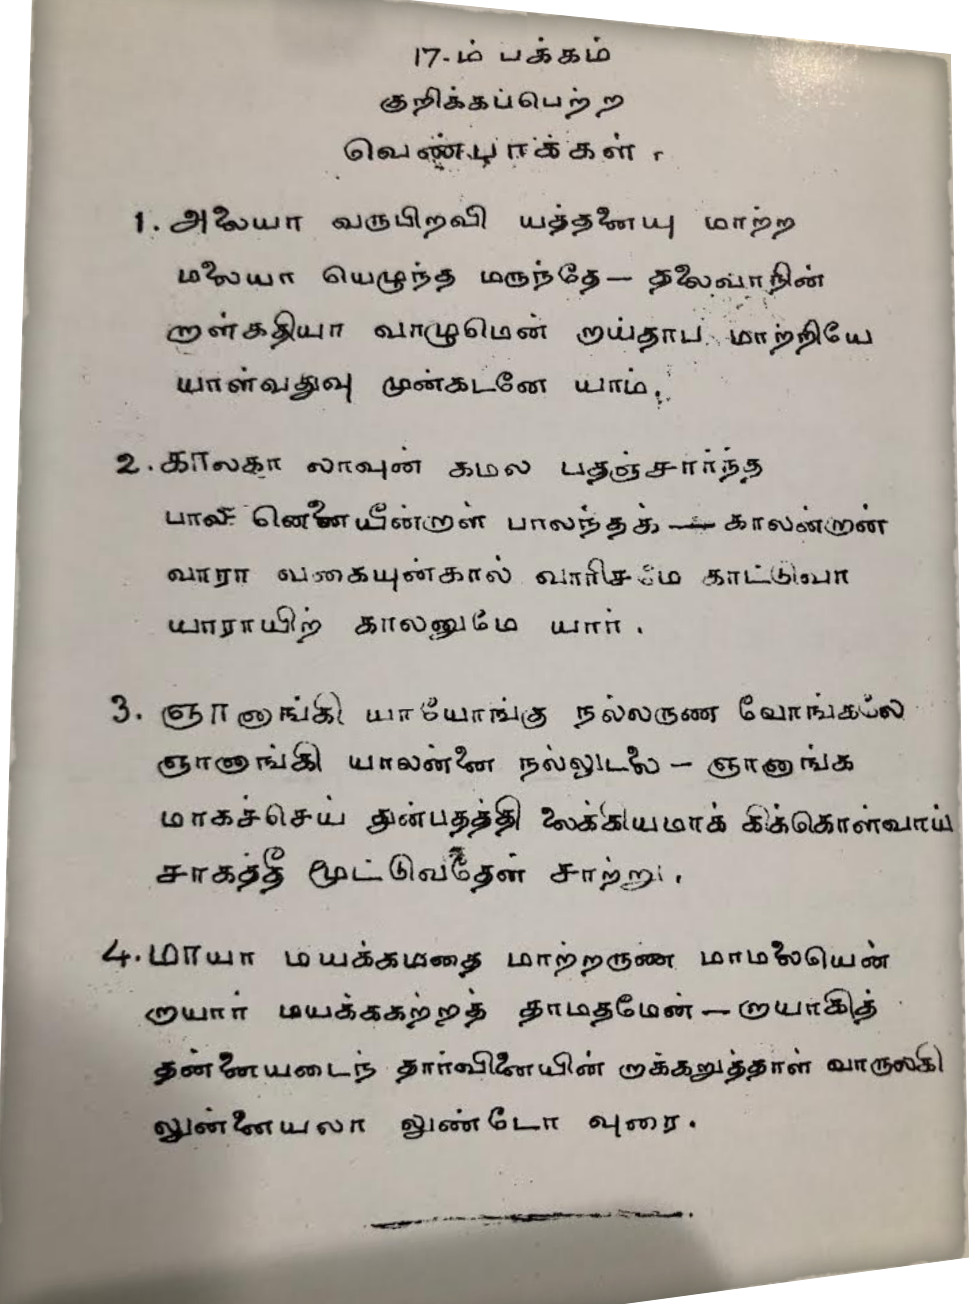 17-ம் பக்கம்
குறிக்கப்பெற்ற
வெண்பாக்கள்.
1. அலையா வருபிறவி யத்தனையு மாற்ற
மலையா யெழுந்த மருந்தே - தலைவாநின்
றாள்கதியா வாழுமென் றாய்தாப மாற்றியே
யாள்வதுவு முன்கடனே யாம்.
2. காலகா லாவுன் கமல பதஞ்சார்ந்த
பால னெனையீன்றாள் பாலந்தக் - காலன்றான்
வாரா வகையுன்கால் வாரிசமே காட்டுவா
யாராயிற் காலனுமே யார்.
3. ஞானாங்கி யாயோங்கு நல்லருண வோங்கலே
ஞானாங்கி யாலன்னை நல்லுடலை - ஞானாங்க
மாகச்செய் துன்பதத்தி லைக்கியமாக் கிக்கொள்வாய்
சாகத்தீ மூட்டுவதேன் சாற்று.
4. மாயா மயக்கமதை மாற்றருண மாமலையென்
றாயார் மயக்ககற்றத் தாமதமேன் - றாயாகித்
தன்னையடைந் தார்வினையின் றாக்கறுத்தாள் வாருலகி
லுன்னையலா லுண்டோ வுரை.